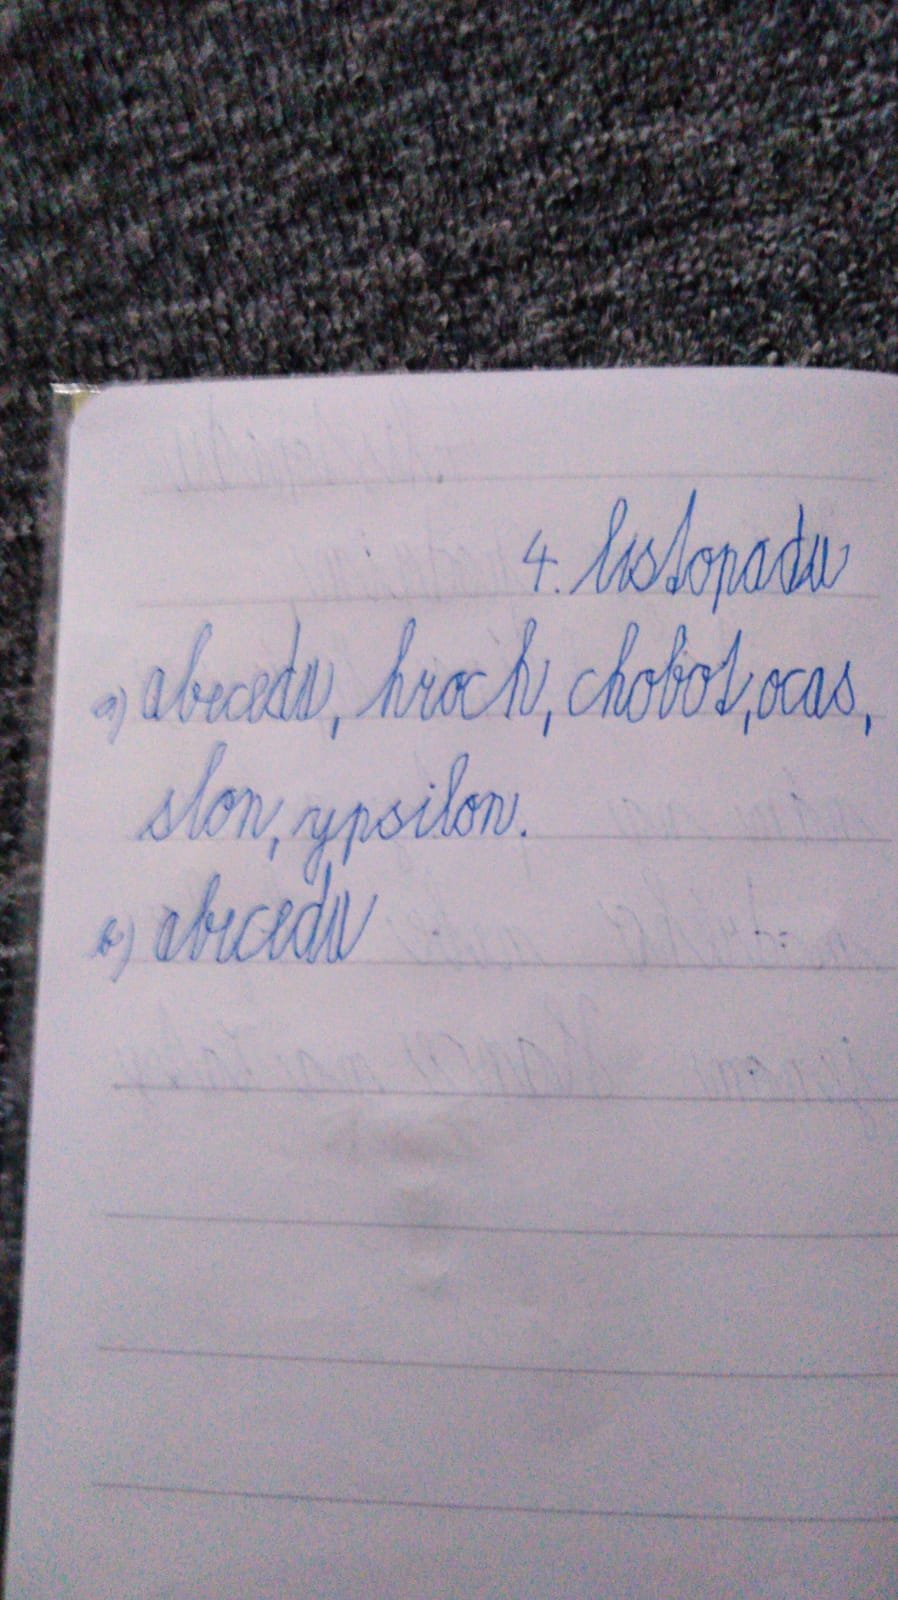 4. listopadu
a) abecedu, hroch, chobot, ocas,
slon, ypsilon.
b) abecedu